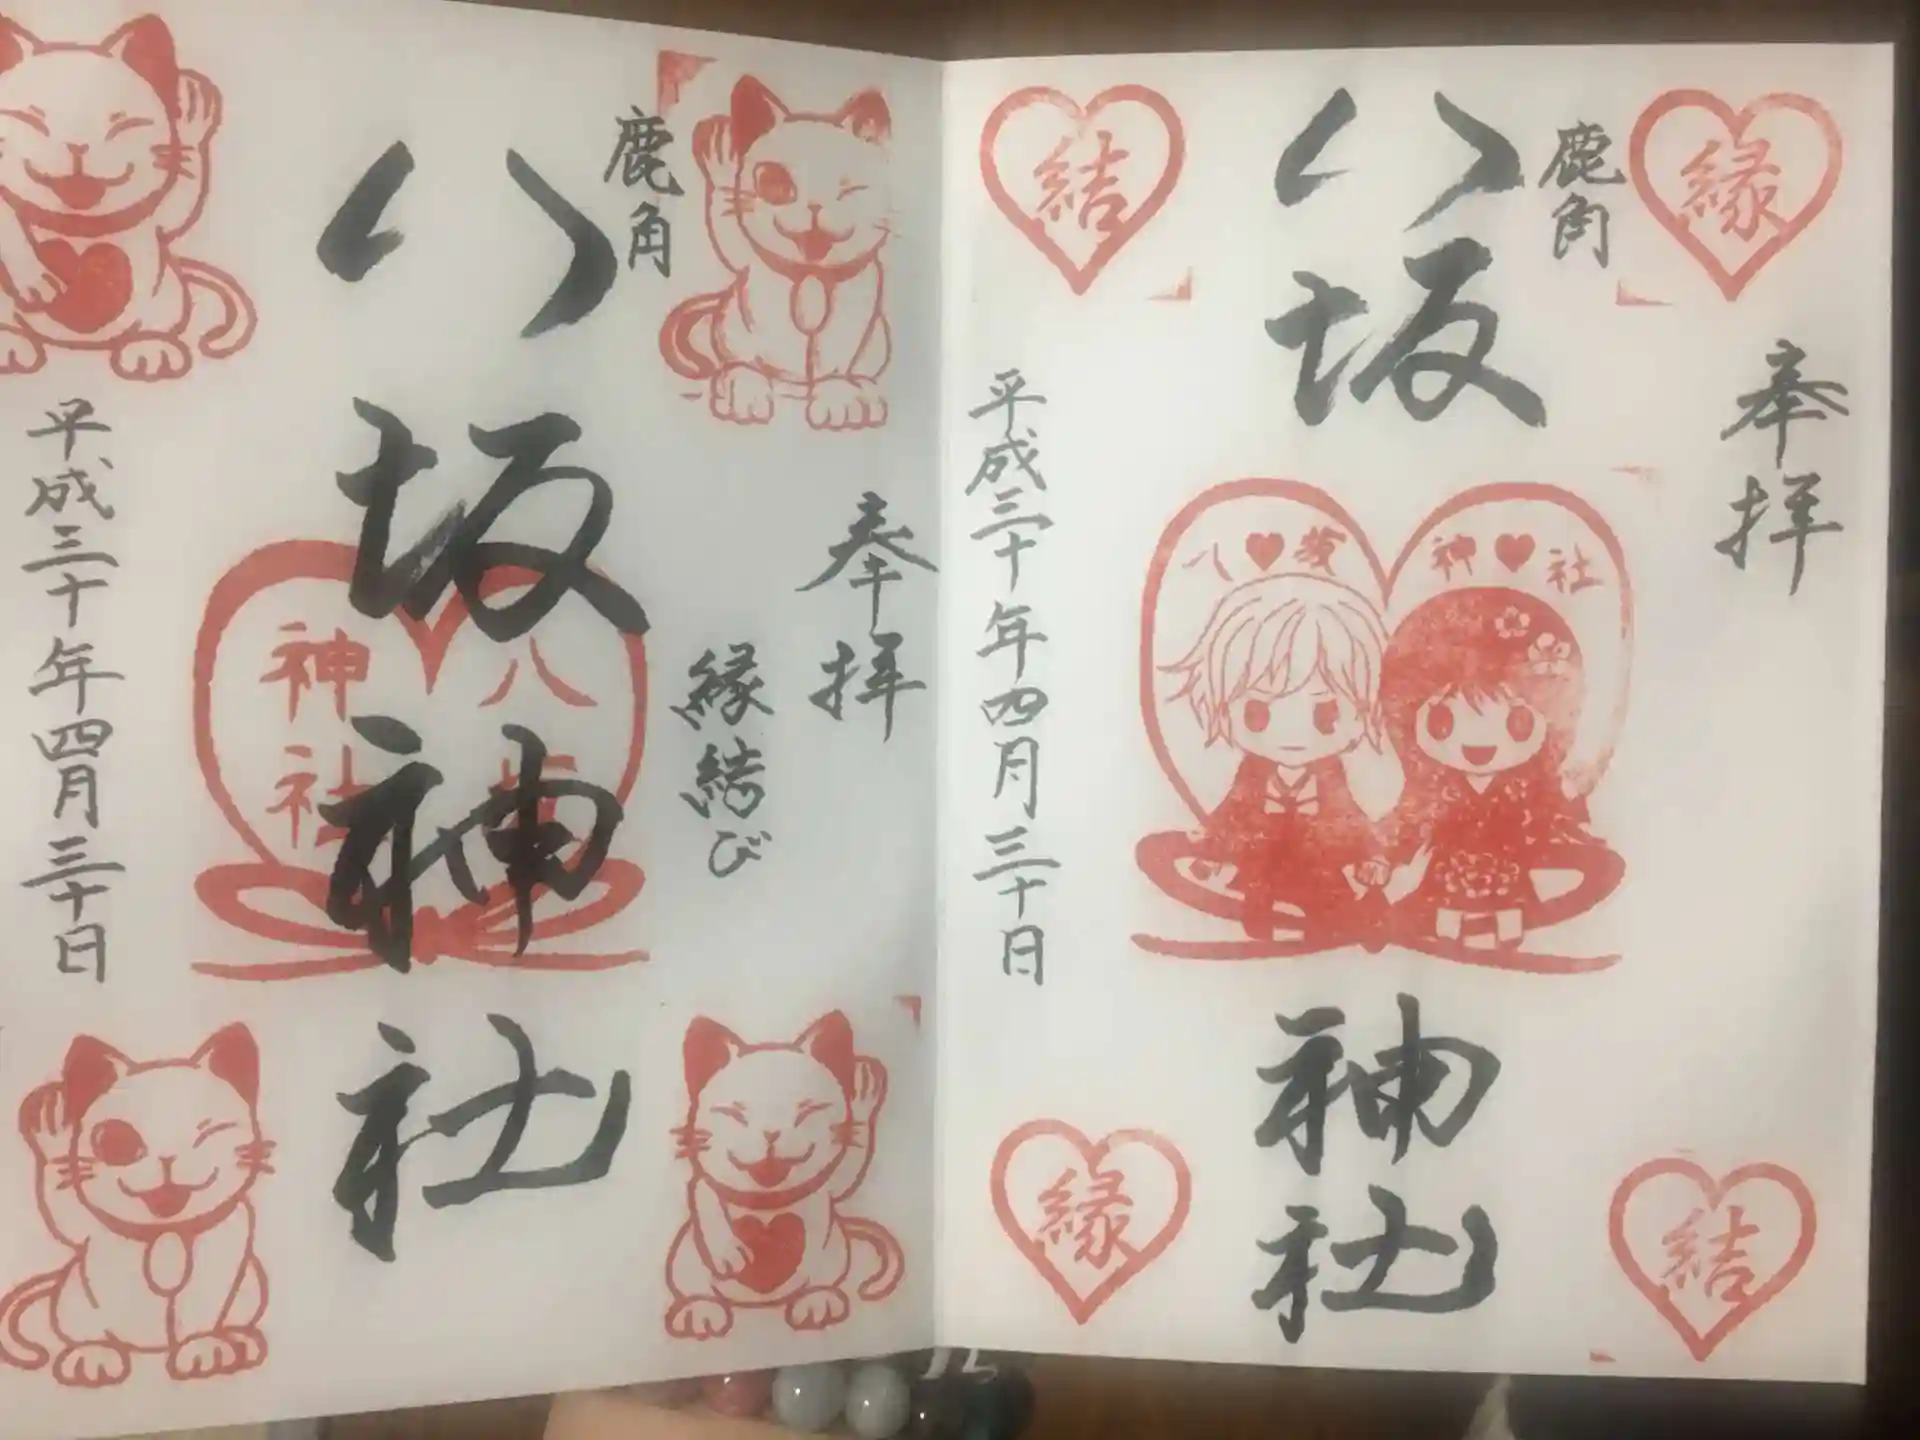 縁
奉拝
鹿角
八坂神社
八♥坂
神♥社
結
結
縁
平成三十年四月三十日
奉拝
縁結び
鹿角
八坂神社
八
神社
平成三十年四月三十日